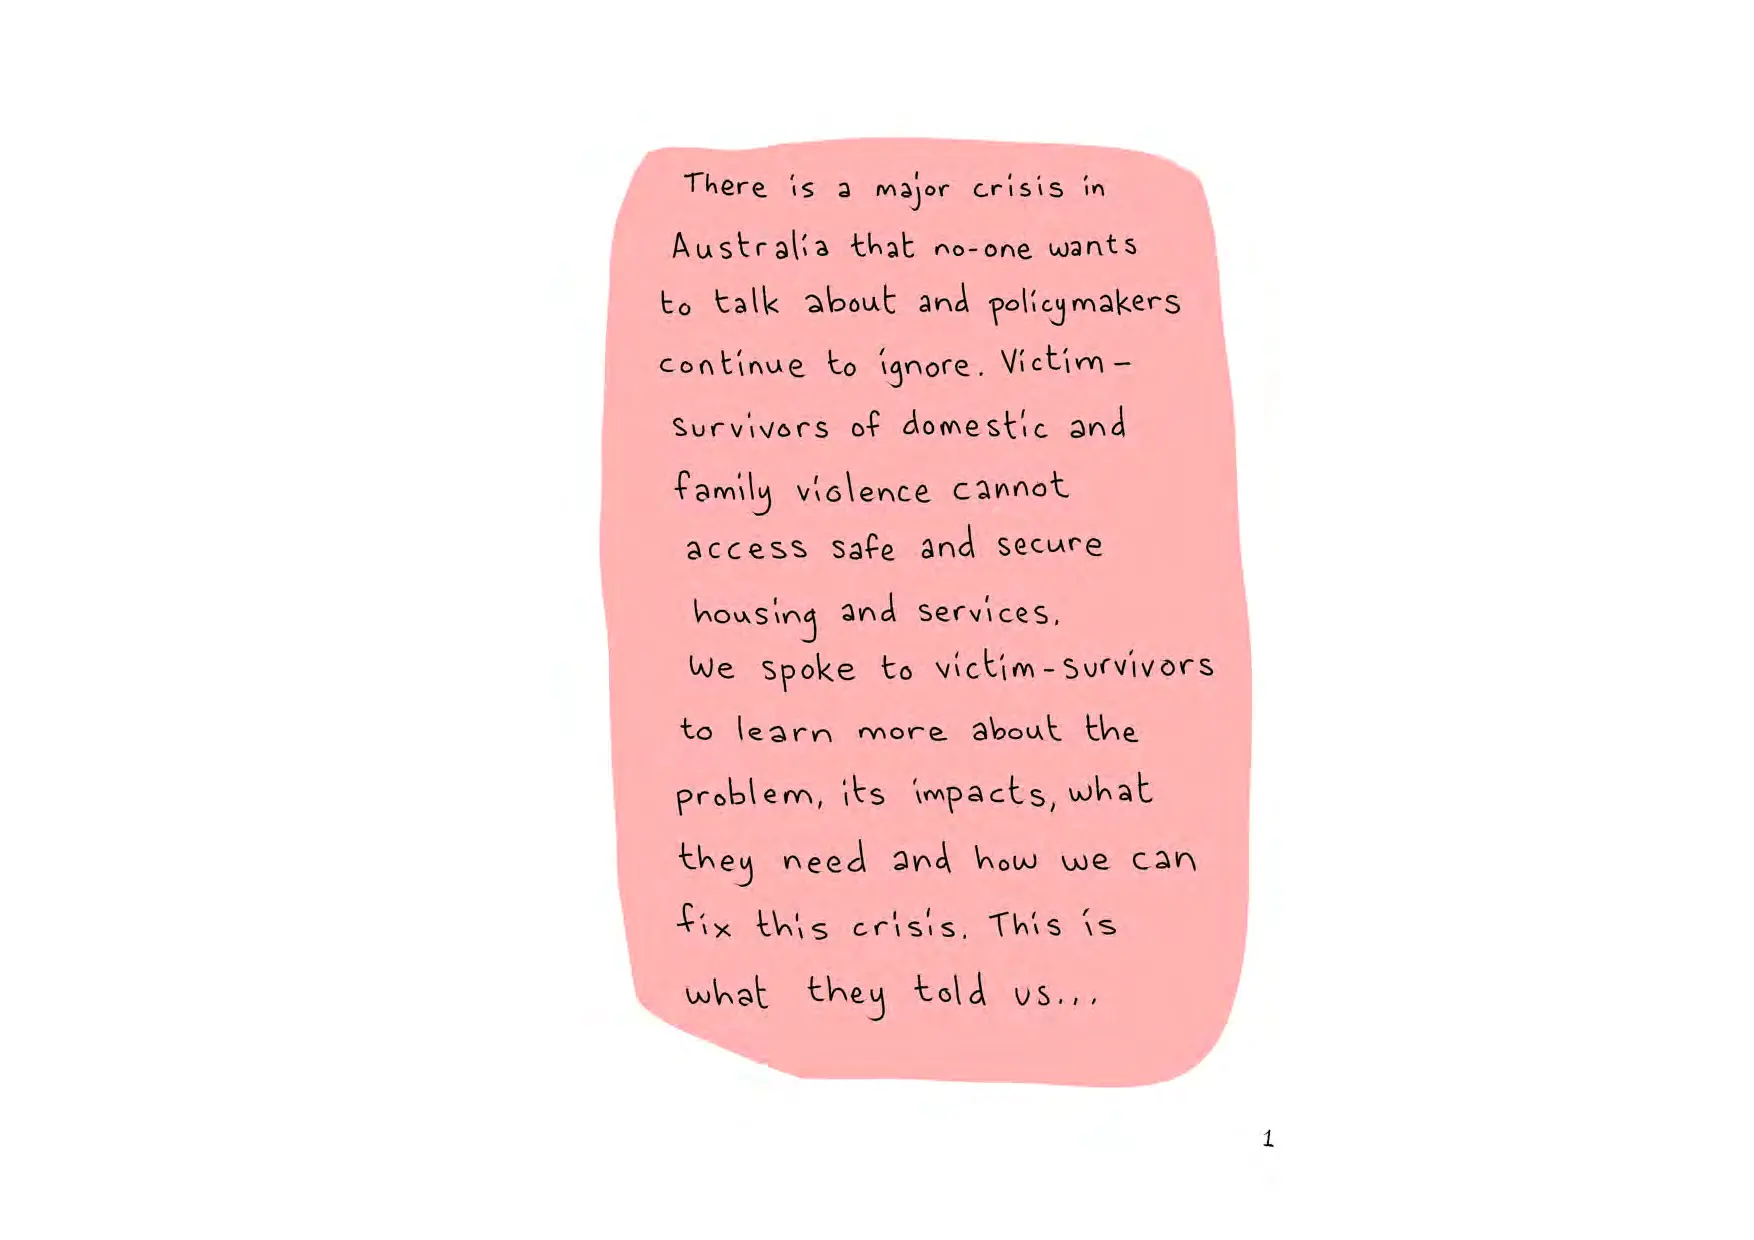 There is a major crisis in
Australia that no-one wants
to talk about and policymakers
continue to ignore. Victim-
survivors of domestic and
family violence cannot
access safe and secure
housing and services.
We spoke to victim-survivors
to learn more about the
problem, its impacts, what
they need and how we can
fix this crisis. This is
what they told us...
1